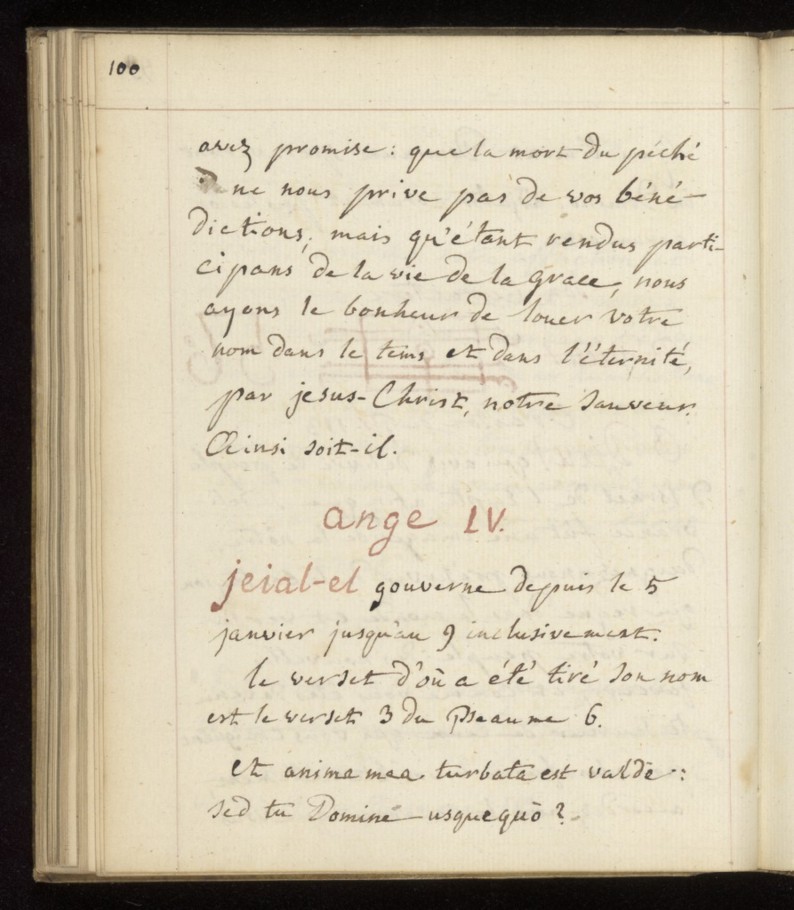 100
avez promise : que la mort du péché
ne nous prive pas de vos béné-
dictions, mais qu'étant rendus parti-
cipans de la vie de la grace, nous
ayons le bonheur de louer votre
nom dans le tems et dans l'éternité,
par jesus-Christ, notre Sauveur.
Ainsi soit-il.
ange LV.
jeial-el gouverne depuis le 5
janvier jusqu'au 9 inclusivement.
le verset d'où a été tiré son nom
est le verset 3 du Pseaume 6.
et anima mea turbata est valdè :
sed tu Domine usquequò ?